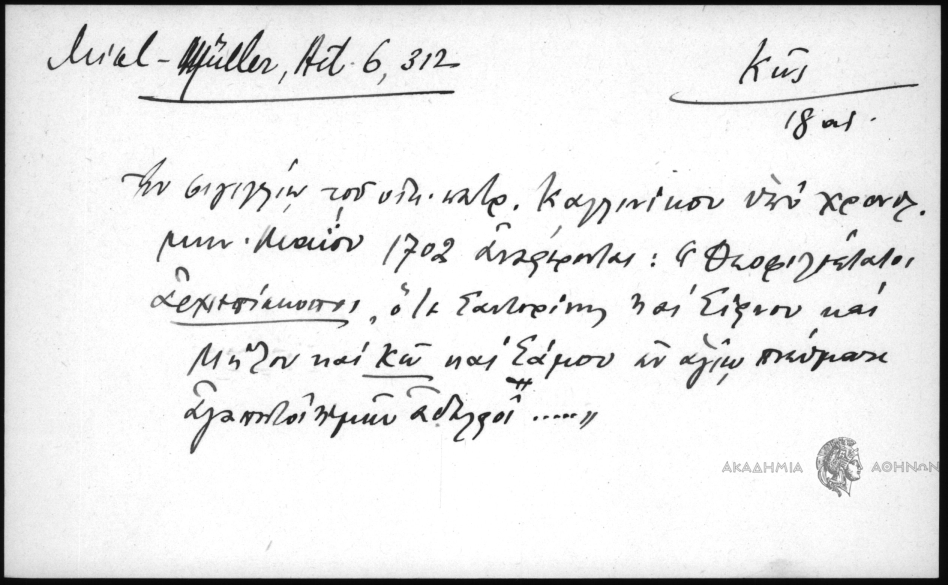 Mikl-Müller, Act. 6, 312
Κῶς
18 αι.
Ἐν σιγιλλίῳ τοῦ οἰκ. πατρ. Καλλινίκου ὑπὸ χρονολ.
μην. Μαΐου 1702 ἀναφέρονται: "Θεοφιλέστατοι
ἀρχιεπίσκοποι, ὅ τε Σαντορίνης καὶ Σίφνου καὶ
Μήλου καὶ Κῶ καὶ Σάμου ἐν ἁγίῳ πνεύματι
ἀγαπητοὶ ἡμῶν ἀδελφοὶ ....."
ΑΚΑΔΗΜΙΑ ΑΘΗΝΩΝ